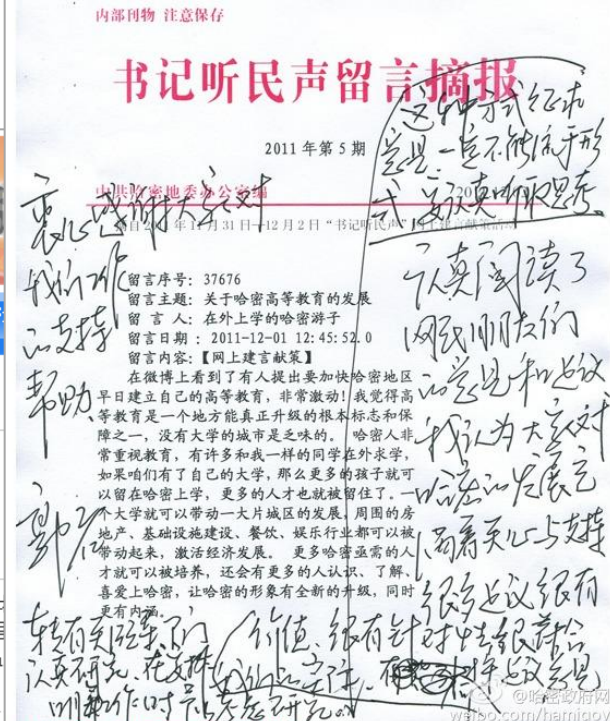 内部刊物 注意保存
书记听民声留言摘报
2011年第5期
中共哈密地委办公室编
留言序号：37676
留言主题：关于哈密高等教育的发展
留 言 人：在外上学的哈密游子
留言日期：2011-12-01 12:45:52.0
留言内容：【网上建言献策】
在微博上看到了有人提出要加快哈密地区
早日建立自己的高等教育，非常激动！我觉得高
等教育是一个地方能真正升级的根本标志和保
障之一，没有大学的城市是乏味的。 哈密人非
常重视教育，有许多和我一样的同学在外求学，
如果咱们有了自己的大学，那么更多的孩子就可
以留在哈密上学，更多的人才也就被留住了。一
个大学就可以带动一大片城区的发展，周围的房
地产、基础设施建设、餐饮、娱乐行业都可以被
带动起来，激活经济发展。 更多哈密亟需的人
才就可以被培养，还会有更多的人认识、了解、
喜爱上哈密，让哈密的形象有全新的升级，同时
更有内涵。
衷心感谢大家对
我们工作
的支持
帮助
这种方式征求
意见一定不能流于形
式
认真阅读了
网民朋友们
的意见和建议
我认为大家对
哈密的发展
关心与支持
很多建议很有
价值 很有针对性
转有关领导 部门
认真研究 在安排
明年工作时
@哈密政府网
weibo.com/hamigov